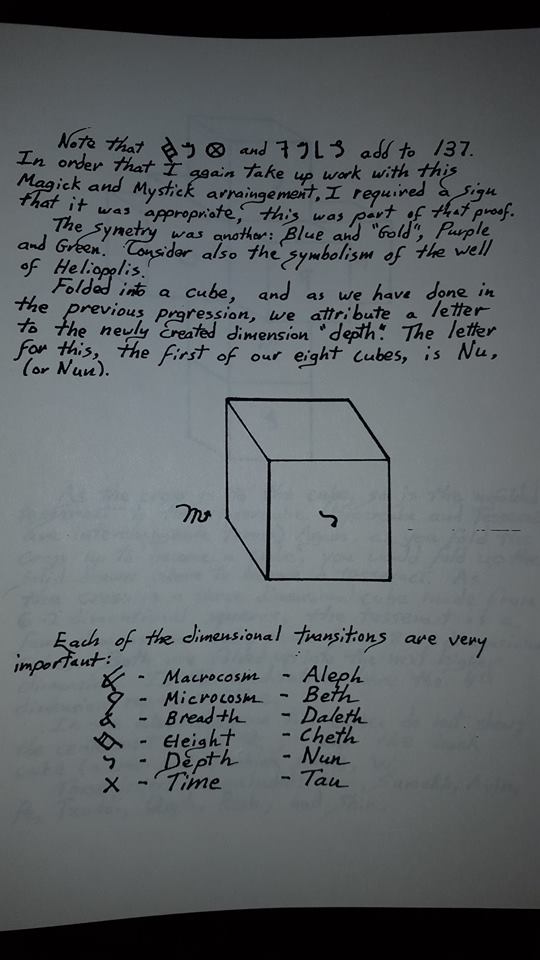 Note that and add to 137.
In order that I again take up work with this
Magick and Mystick arraingement, I required a sign
that it was appropriate, this was part of that proof.
The symetry was another: Blue and "Gold", Purple
and Green. Consider also the symbolism of the well
of Heliopolis.
Folded into a cube, and as we have done in
the previous prgression, we attribute a letter
to the newly created dimension "depth". The letter
for this, the first of our eight cubes, is Nu,
(or Nun).
Each of the dimensional transitions are very
important:
- Macrocosm - Aleph
- Microcosm - Beth
- Breadth - Daleth
- Height - Cheth
- Depth - Nun
- Time - Tau